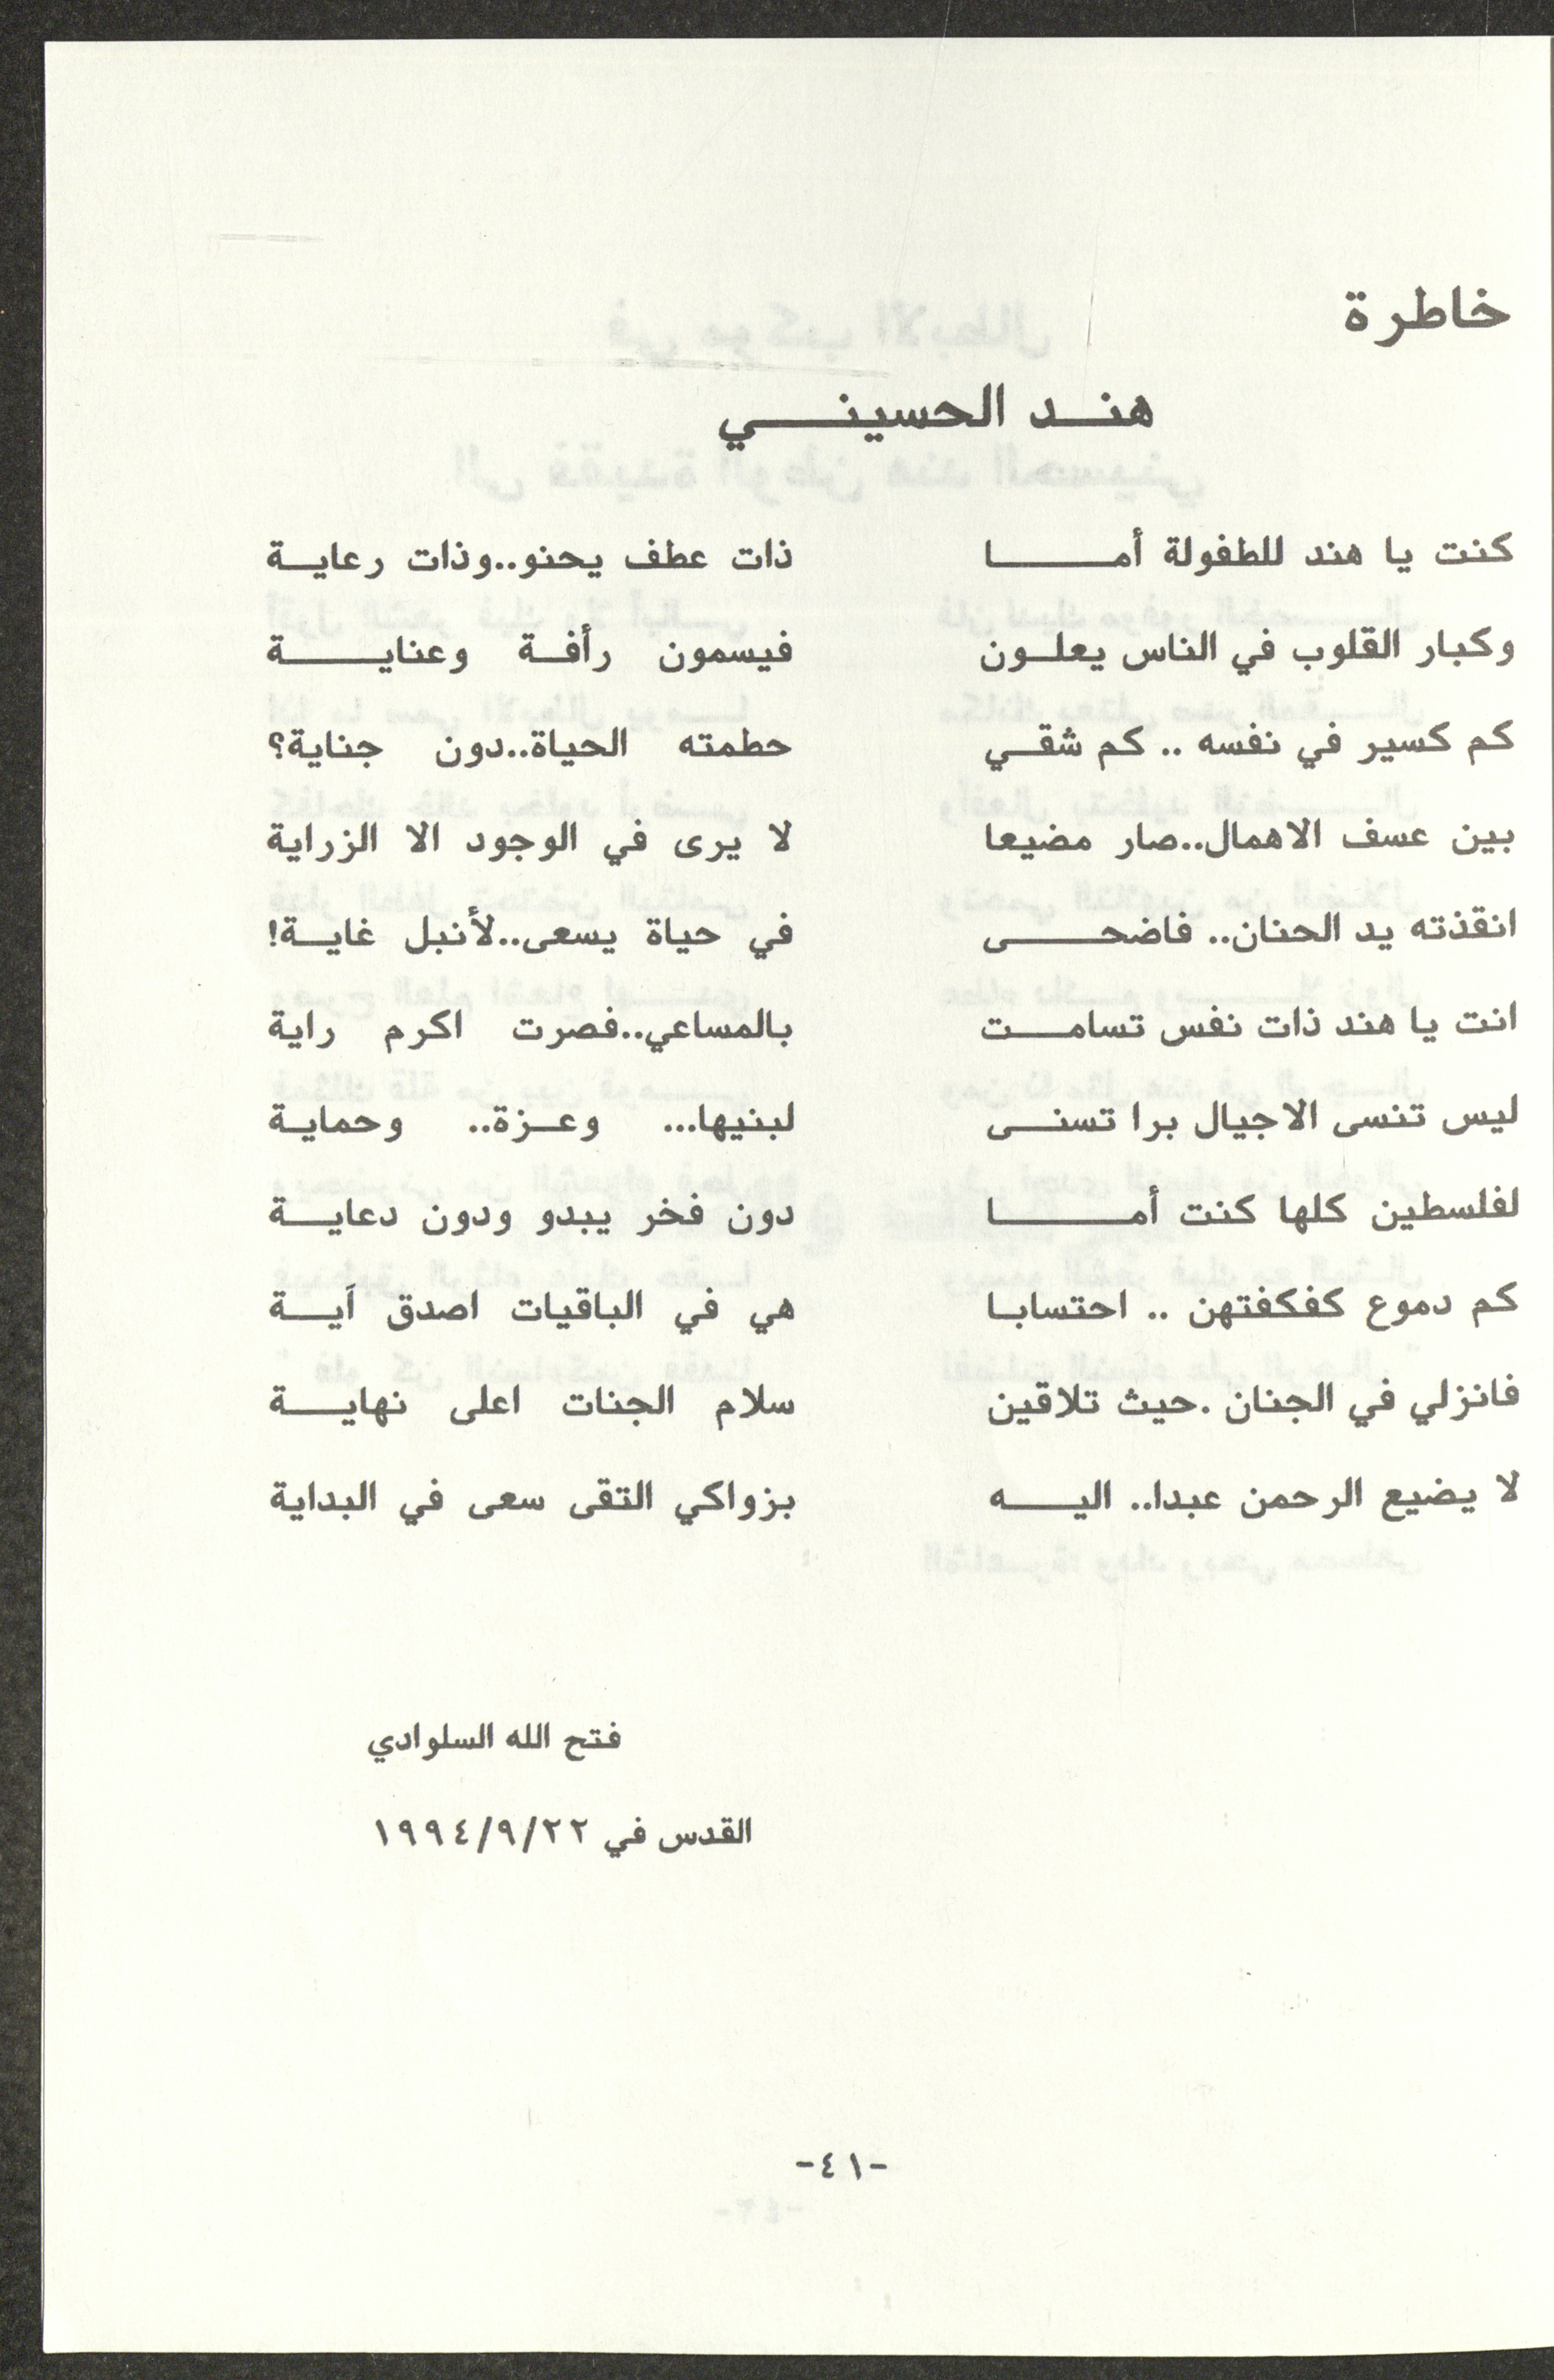 خاطرة
هنـد الحسينـي
كنت يا هند للطفولة أمـا ذات عطف يحنو..وذات رعايـة
وكبار القلوب في الناس يعلـون فيسمون رأفـة وعنايـة
كم كسير في نفسه .. كم شقـي حطمته الحياة..دون جناية؟
بين عسف الاهمال..صار مضيعا لا يرى في الوجود الا الزراية
انقذته يد الحنان.. فاضحـى في حياة يسعى..لأنبل غايـة!
انت يا هند ذات نفس تسامـت بالمساعي..فصرت اكرم راية
ليس تنسى الاجيال برا تسنـى لبنيها... وعـزة.. وحمايـة
لفلسطين كلها كنت أمـا دون فخر يبدو ودون دعايـة
كم دموع كفكفتهن .. احتسابـا هي في الباقيات اصدق آيـة
فانزلي في الجنان .حيث تلاقين سلام الجنات اعلى نهايـة
لا يضيع الرحمن عبدا.. اليـه بزواكي التقى سعى في البداية
فتح الله السلوادي
القدس في ١٩٩٤/٩/٢٢
-٤١-